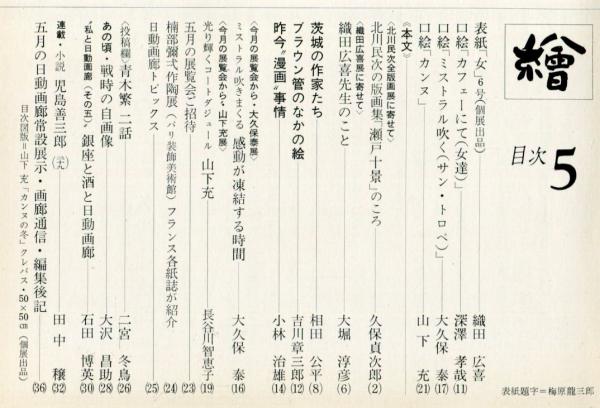 繪
目次 5
表紙「女」6号(個展出品) 織田 広喜
口絵「カフェーにて(女達)」 深澤 孝哉(11)
口絵「ミストラル吹く(サン・トロペ)」 大久保 泰(17)
口絵「カンヌ」 山下 充(21)
〈本文〉
〈北川民次全版画展に寄せて〉
北川民次の版画集「瀬戸十景」のころ 久保貞次郎(2)
〈織田広喜展に寄せて〉
織田広喜先生のこと 大堀 淳彦(6)
茨城の作家たち 相田 公平(8)
ブラウン管のなかの絵 吉川章三郎(12)
昨今“漫画”事情 小林 治雄(14)
〈今月の展覧会から・大久保泰展〉
ミストラル吹きまくる 感動が凍結する時間 大久保 泰(16)
〈今月の展覧会から・山下充展〉
光り輝くコートダジュール 山下充 長谷川智恵子(19)
五月の展覧会ご招待 (23)
楠部彌弌作陶展(パリ装飾美術館)フランス各紙誌が紹介 (24)
日動画廊トピックス (25)
〈投稿欄〉青木繁 二話 二宮 冬鳥(26)
あの頃・戦時の自画像 大沢 昌助(28)
“私と日動画廊〈その五〉” 銀座と酒と日動画廊 石田 博英(30)
連載・小説 児島善三郎 田中 穣(32)
五月の日動画廊常設展示・画廊通信・編集後記 (36)
目次図版=山下 充「カンヌの冬」クレパス・50×50cm(個展出品)
表紙題字=梅原龍三郎